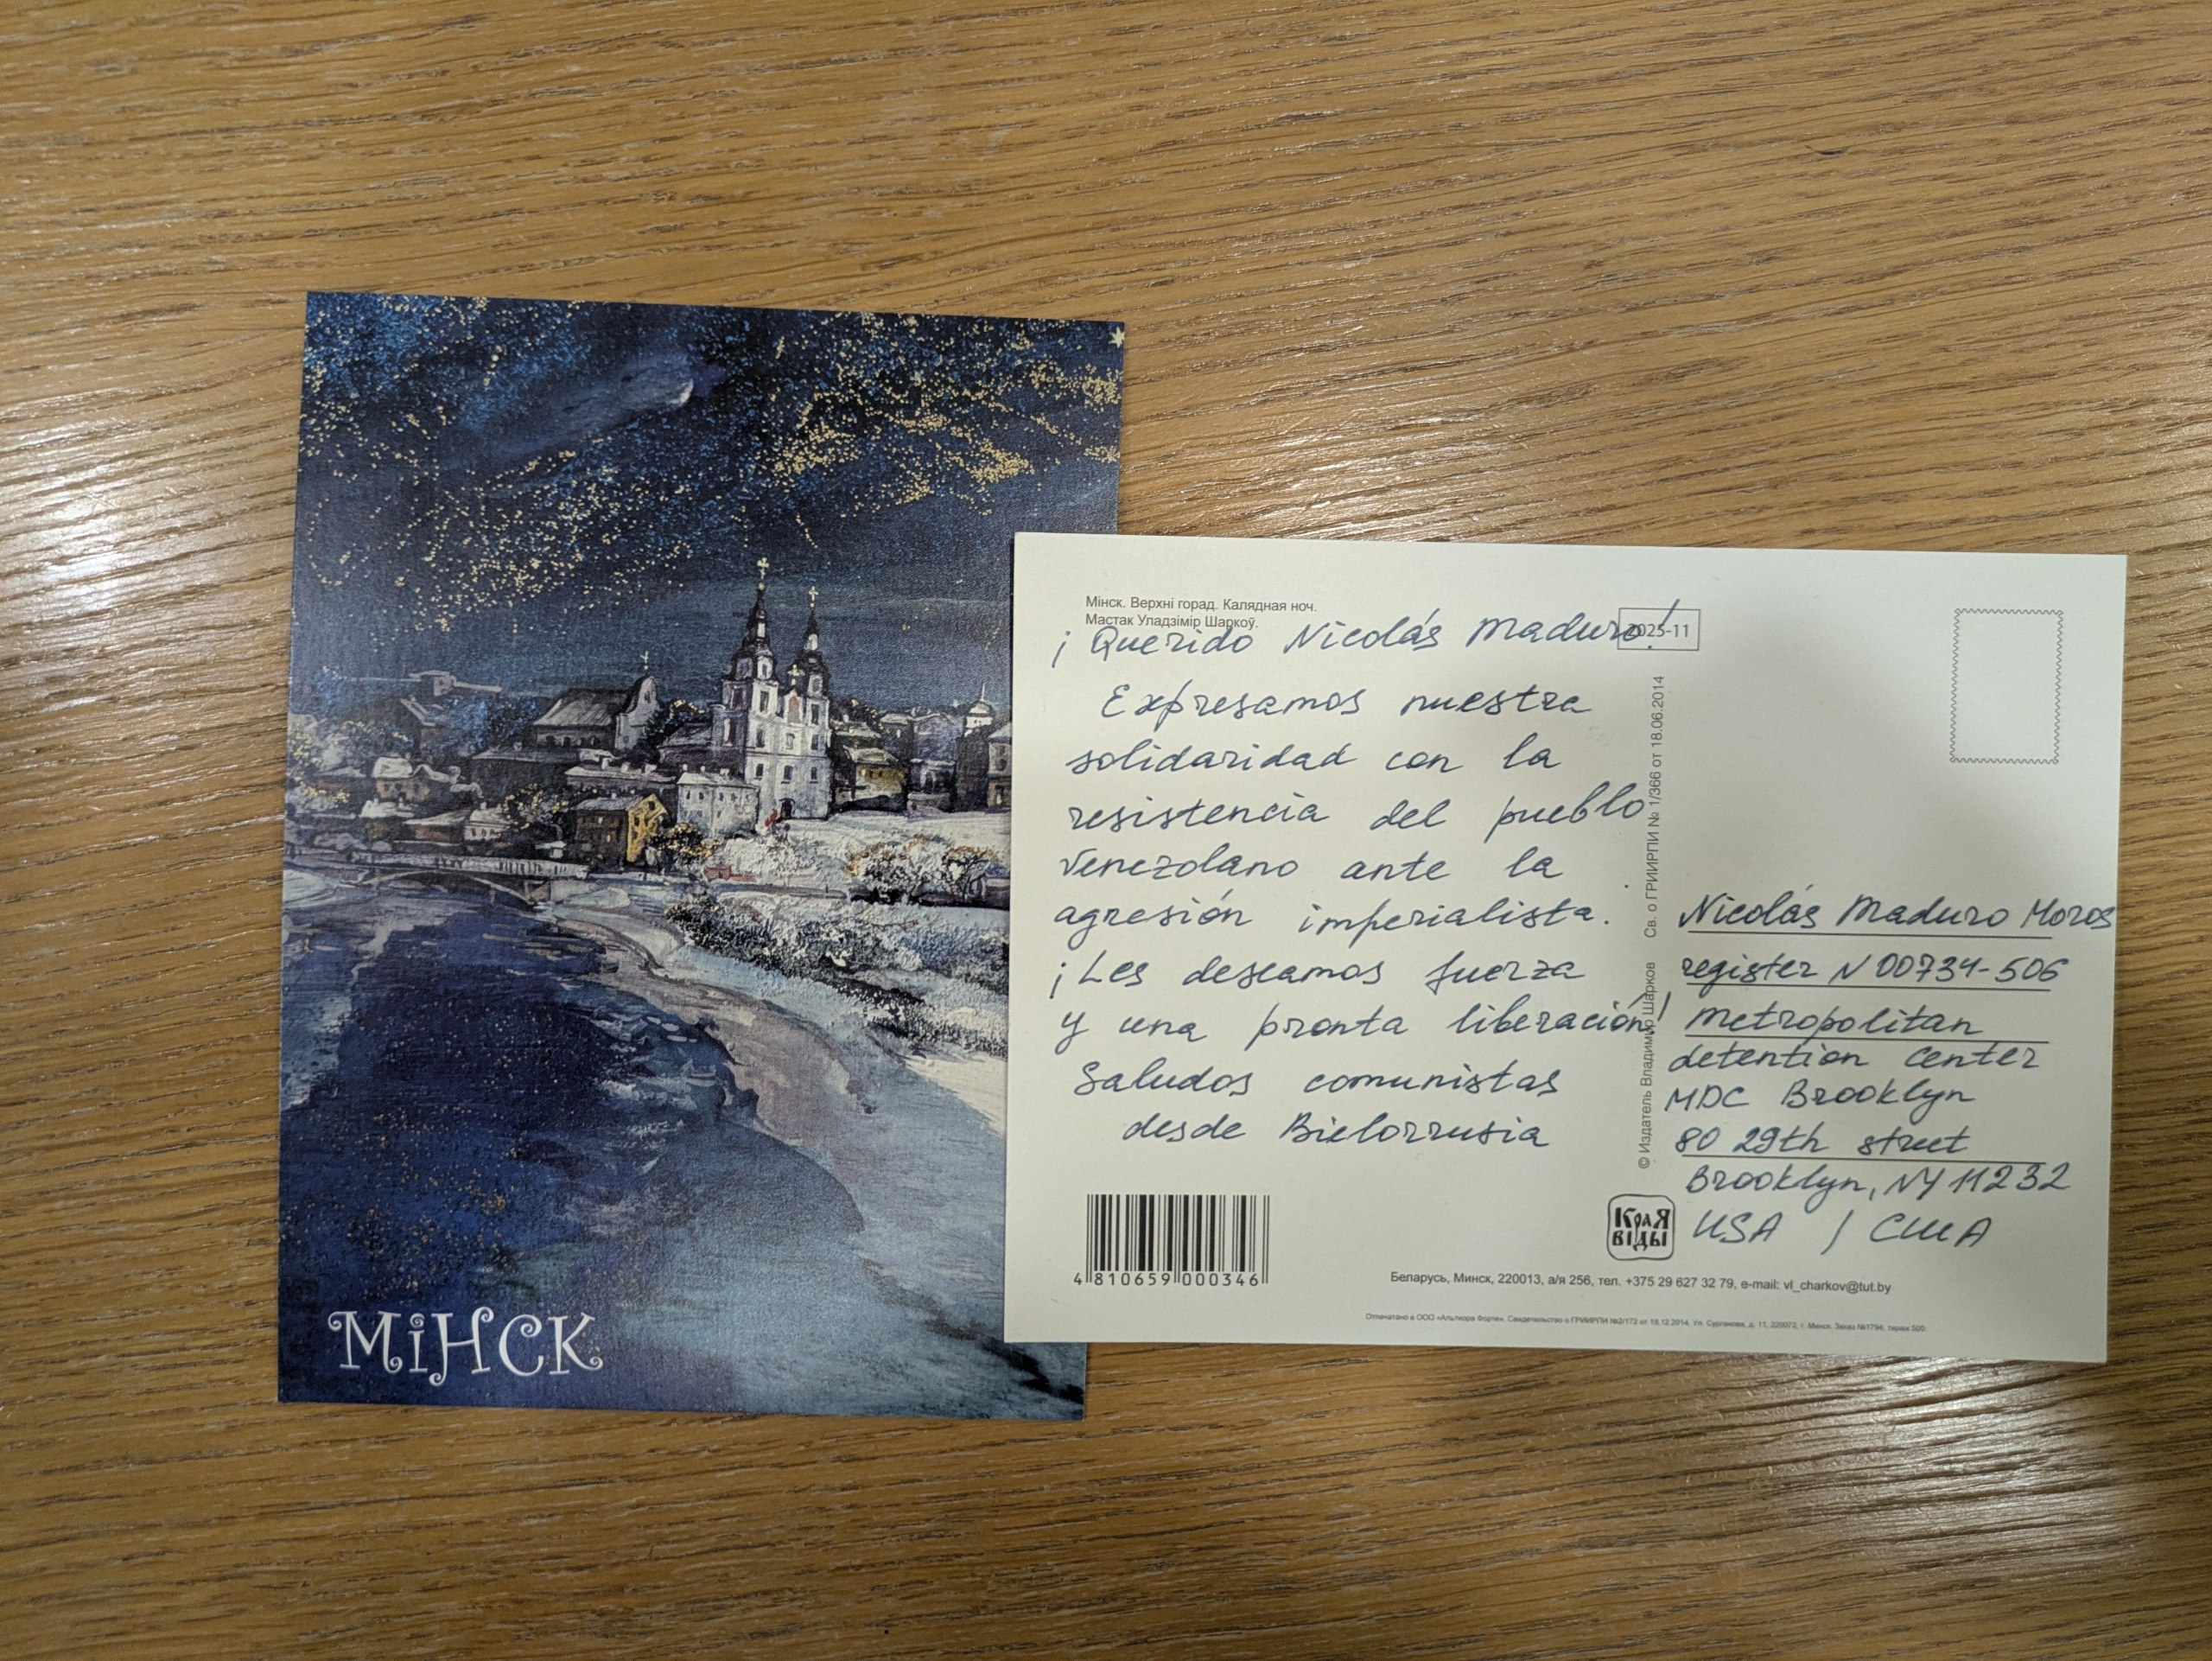 МіНСК
Мінск. Верхні горад. Калядная ноч.
Мастак Уладзімір Шаркоў.
2025-11
¡ Querido Nicolás Maduro!
Expresamos nuestra
solidaridad con la
resistencia del pueblo
venezolano ante la
agresión imperialista.
¡Les deseamos fuerza
y una pronta liberación!
Saludos comunistas
desde Bielorrusia
© Издатель Владимир Шарков Св. о ГРИИРПИ № 1/366 от 18.06.2014
Nicolás Maduro Moros
register N 00734-506
Metropolitan
detention center
MDC Brooklyn
80 29th street
Brooklyn, NY 11232
USA / США
КраЯ
віДЫ
4 810659 000346
Беларусь, Минск, 220013, а/я 256, тел. +375 29 627 32 79, e-mail: vl_charkov@tut.by
Отпечатано в ООО «Альтиора Форте». Свидетельство о ГРИИРПИ №2/172 от 18.12.2014. Ул. Сурганова, д. 11, 220072, г. Минск. Заказ №1794, тираж 500.